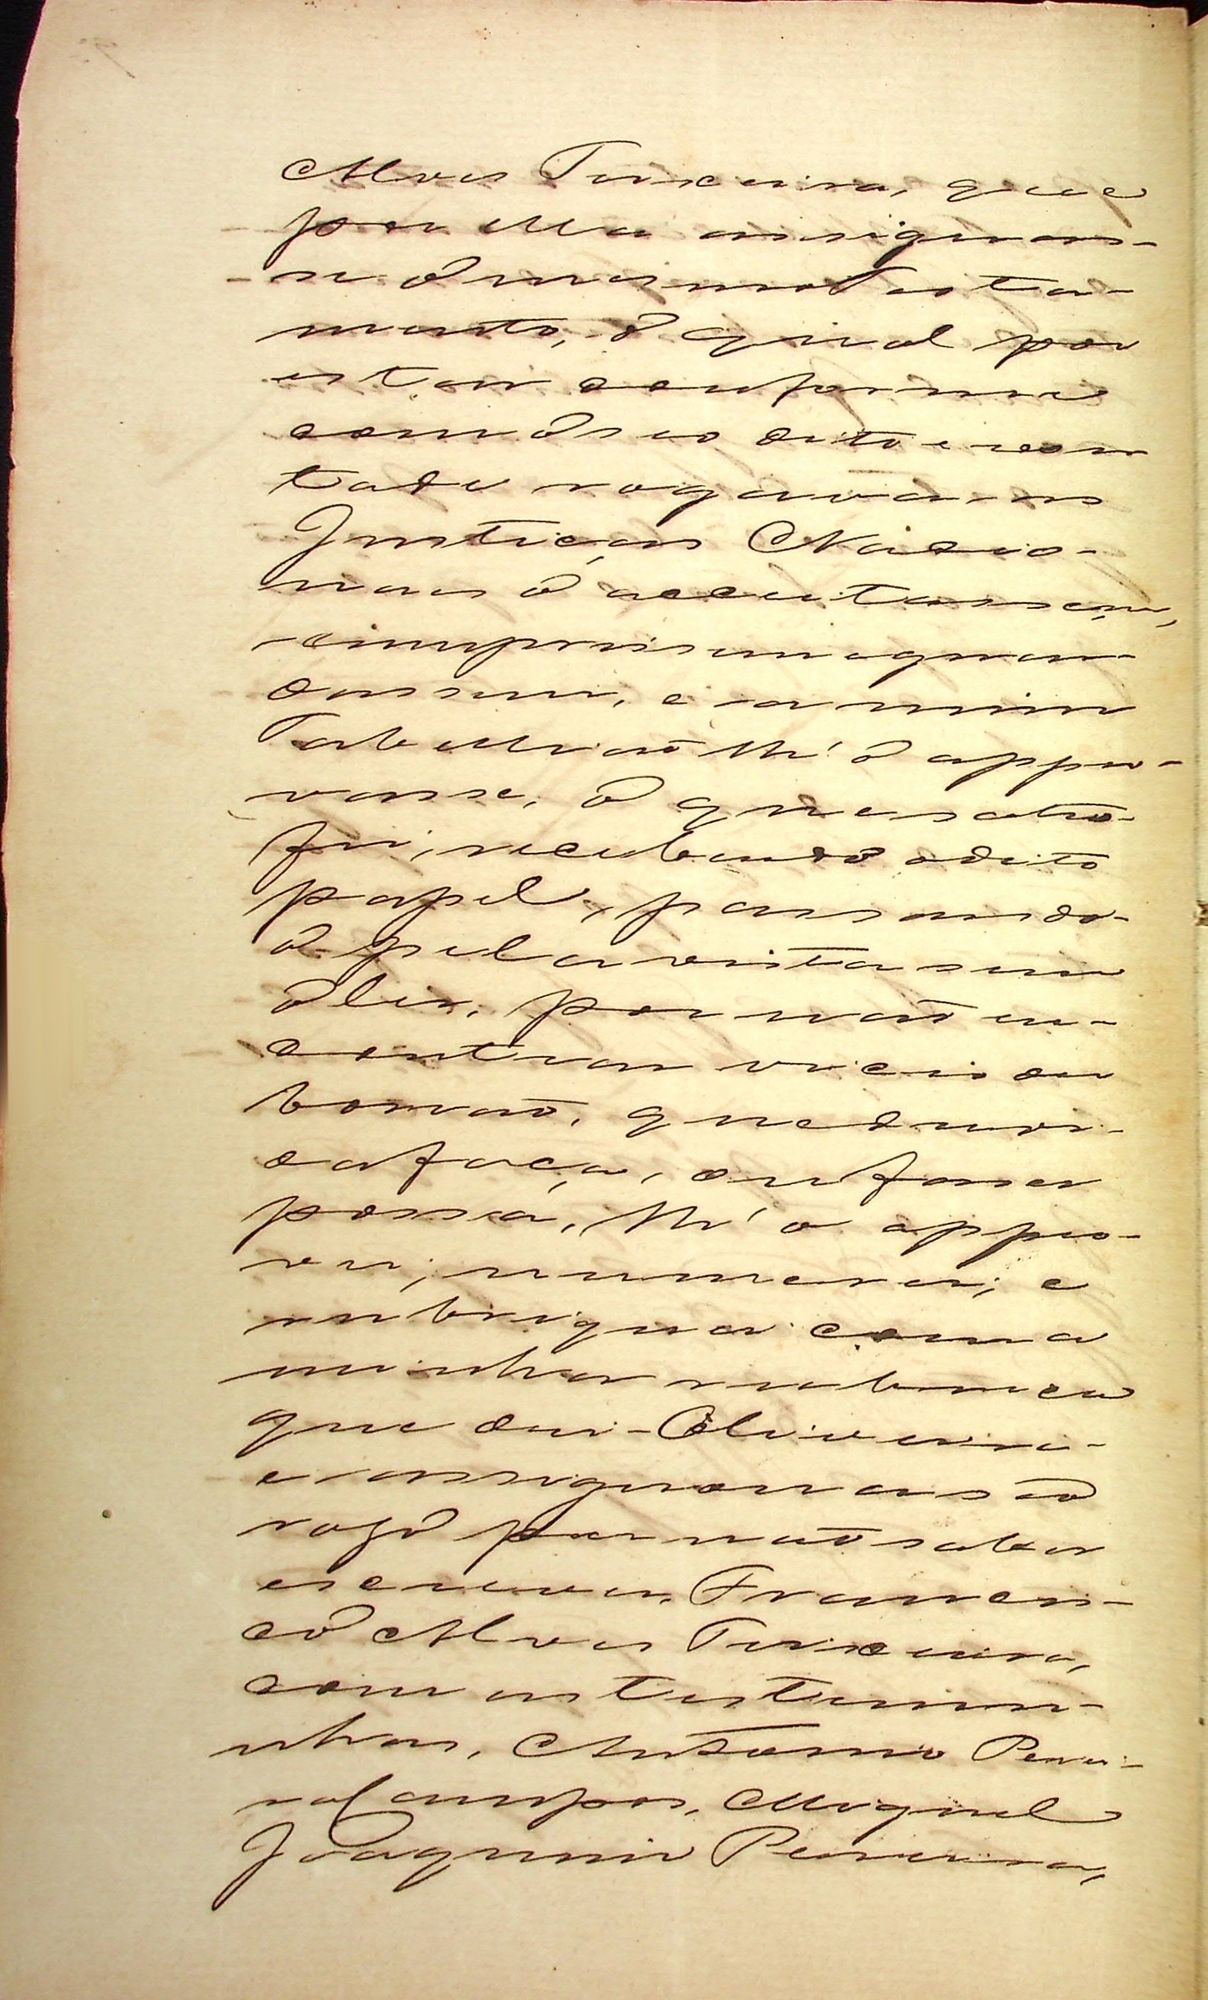 Alves Teixeira, que
por ella assignas-
se o mesmo Testa-
mento, o qual por
estar conforme
com o seo dito e von
tade rogava as
Justiças Nacio-
naes o acceitassem,
cumprissem e guar-
dassem, e a mim
Tabellião lh'o appro-
vasse, o que satis-
fiz, recebendo o dito
papel, passando-
o pela vista sem
o ler, por não en-
contrar vicio ou
borrão, que duvi-
da faça, ou faser
possa, lh'o appro-
vei, numerei, e
rubriquei com a
minha rubrica
que diz - Oliveira -
e assignou a seo
rogo por não saber
escrever, Francis-
co Alves Teixeira,
com as testemu-
nhas, Antonio Perei-
ra Campos, Miguel
Joaquim Pereira,